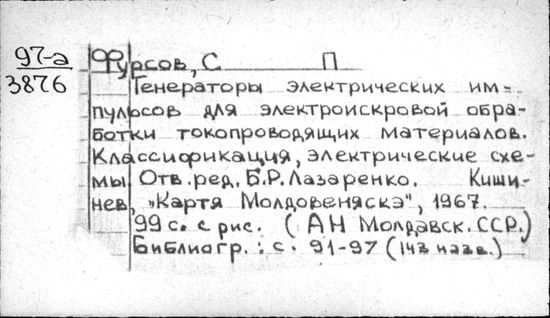 97-а
3876
Фурсов, С П
Генераторы электрических им=
пульсов для электроискровой обра-
ботки токопроводящих материалов.
Классификация, электрические схе-
мы. Отв. ред. Б.Р. Лазаренко. Киши-
нев, "Картя Молдовеняскэ", 1967.
99 с. с рис. (АН Молдавск. ССР.)
Библиогр.: с. 91-97 (143 назв.)